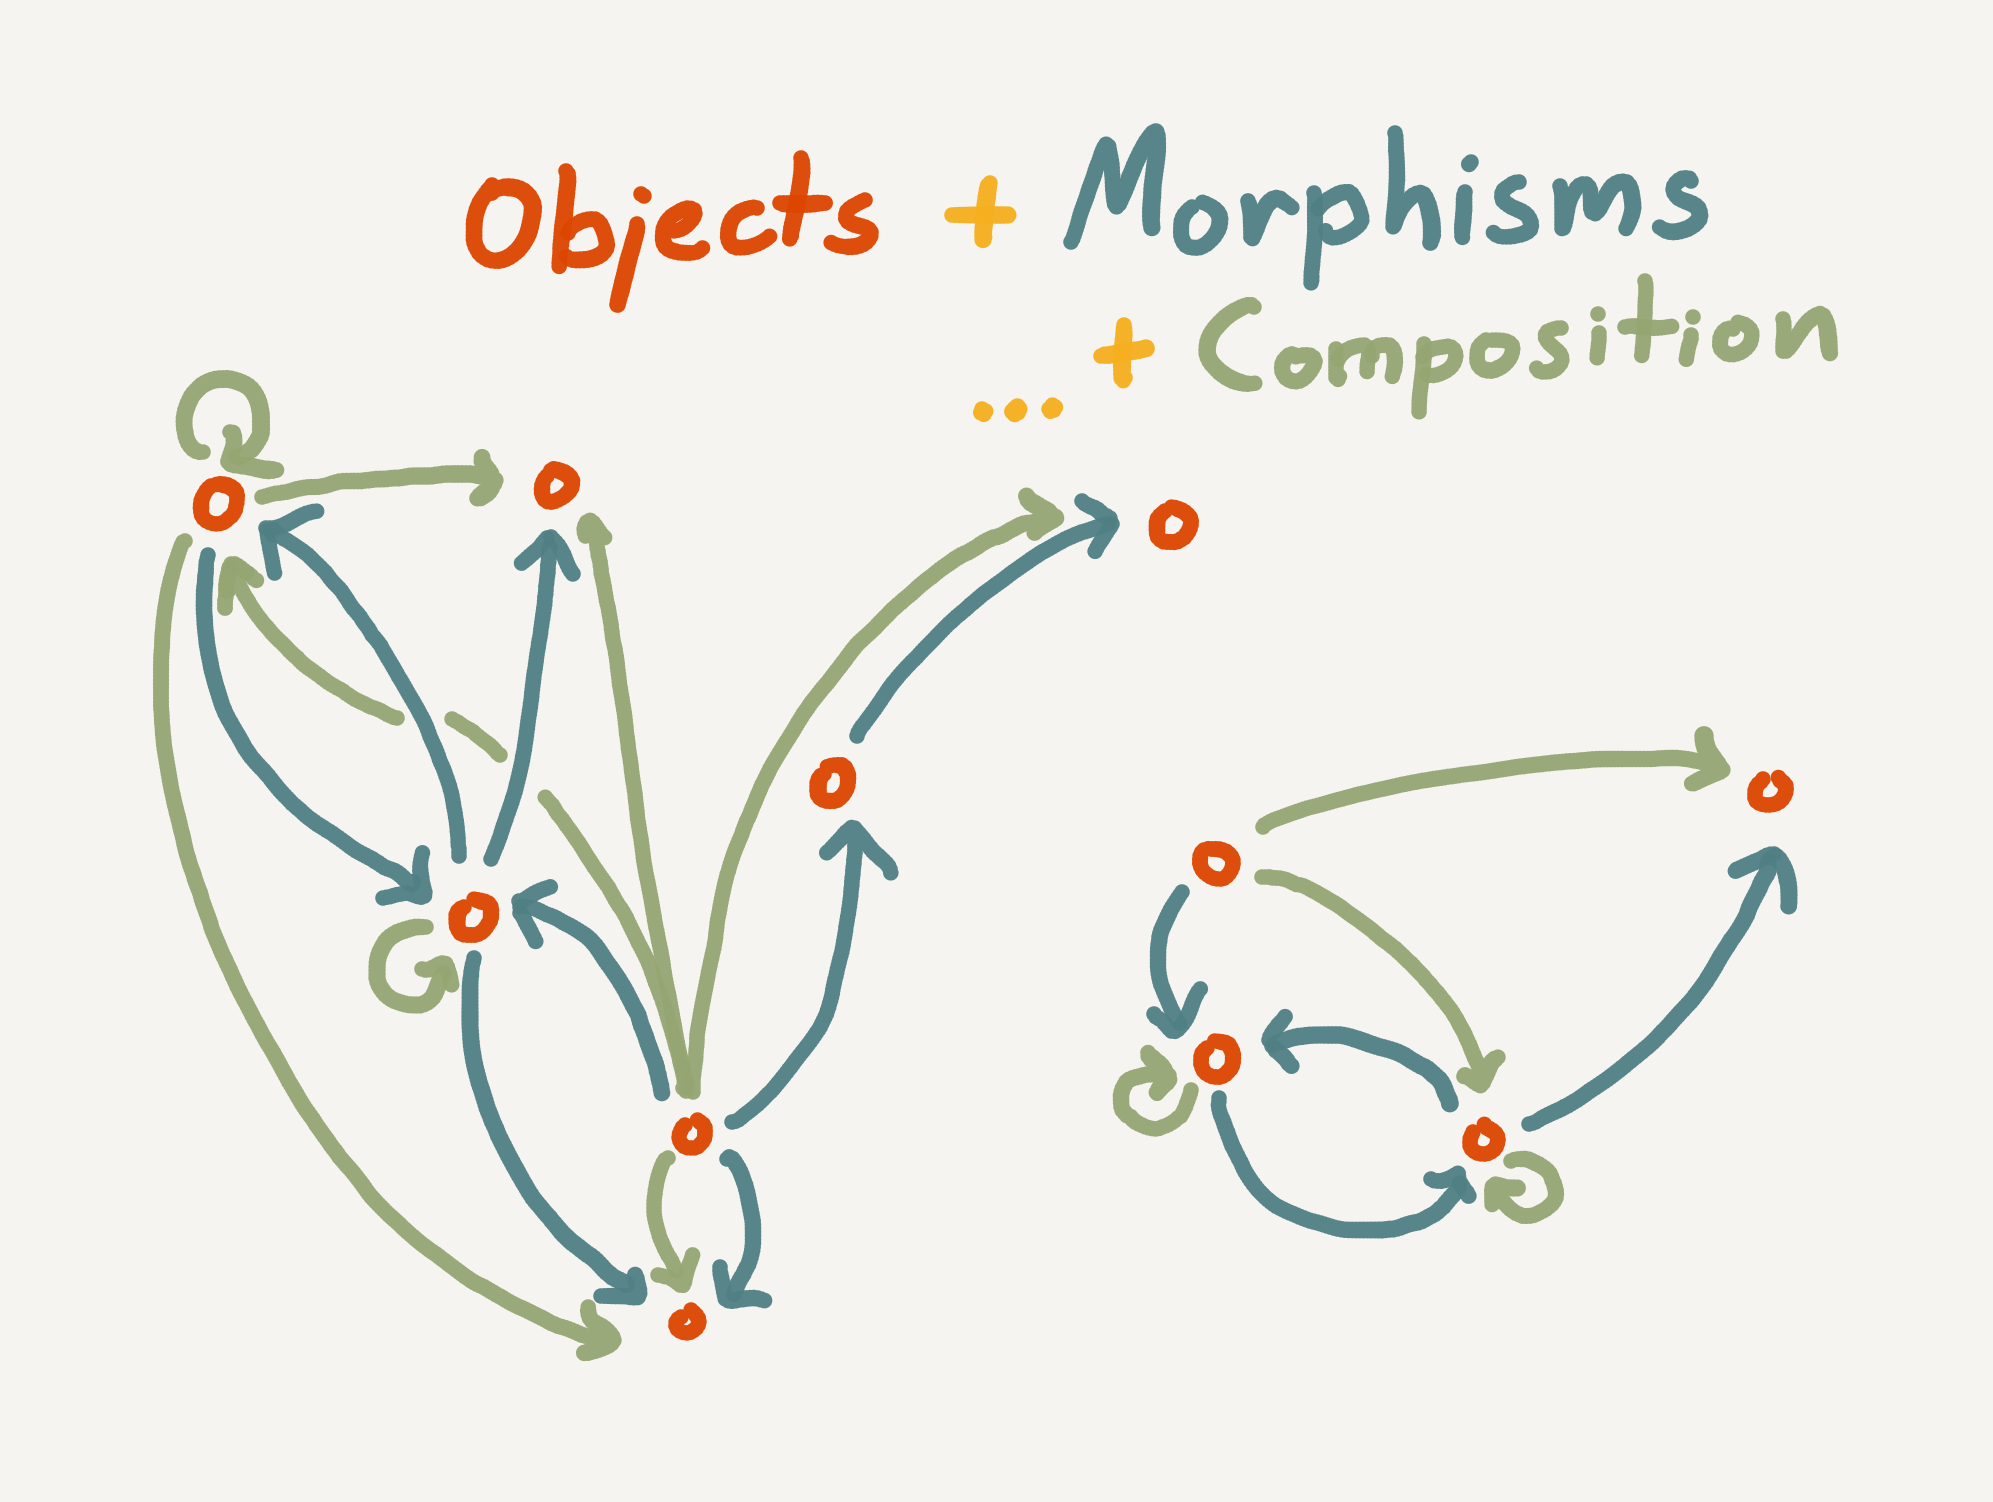 Objects + Morphisms
+ Composition
...